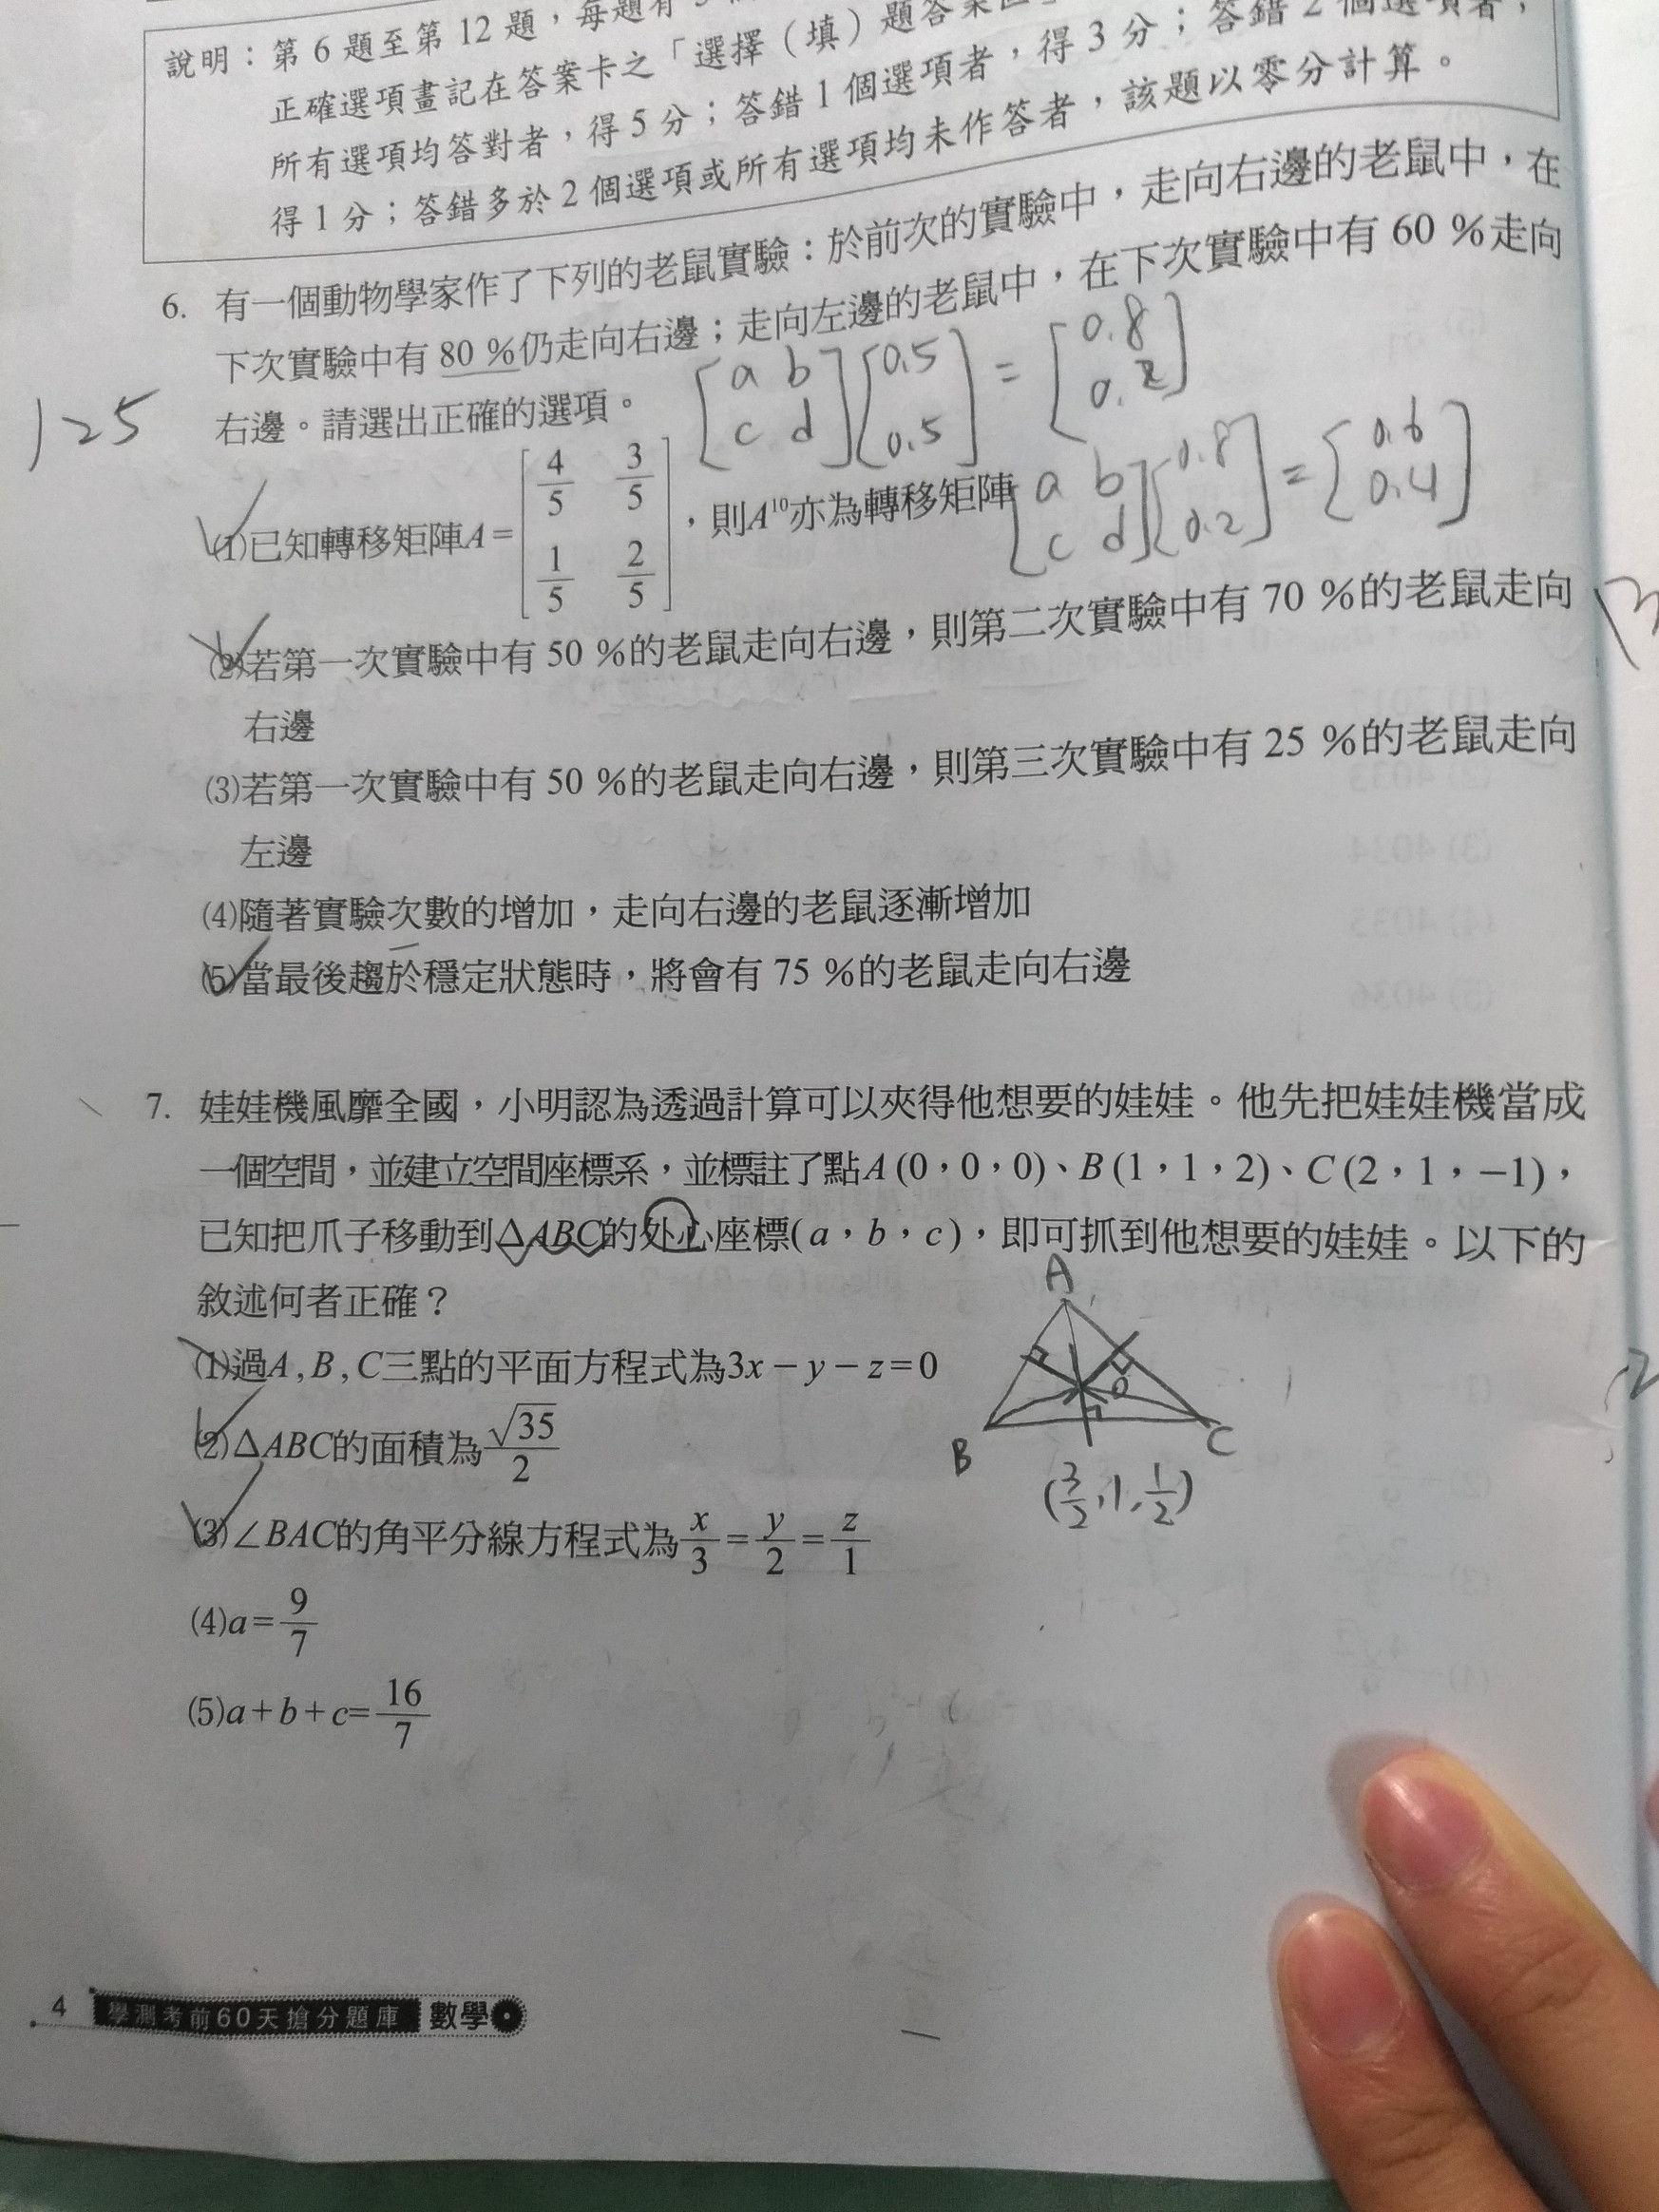 說明：第 6 題至第 12 題，每題有 5
正確選項畫記在答案卡之「選擇（填）題答案區」
所有選項均答對者，得 5 分；答錯 1 個選項者，得 3 分；答錯 2 個選項者，
得 1 分；答錯多於 2 個選項或所有選項均未作答者，該題以零分計算。
6. 有一個動物學家作了下列的老鼠實驗：於前次的實驗中，走向右邊的老鼠中，在
下次實驗中有 80 %仍走向右邊；走向左邊的老鼠中，在下次實驗中有 60 %走向
右邊。請選出正確的選項。
[a b c d] [0.5 0.5] = [0.8 0.2]
125
(1)已知轉移矩陣A=[4/5 3/5 1/5 2/5]，則A¹⁰亦為轉移矩陣
[a b c d] [0.8 0.2] = [0.6 0.4]
(2)若第一次實驗中有 50 %的老鼠走向右邊，則第二次實驗中有 70 %的老鼠走向
右邊
(3)若第一次實驗中有 50 %的老鼠走向右邊，則第三次實驗中有 25 %的老鼠走向
左邊
(4)隨著實驗次數的增加，走向右邊的老鼠逐漸增加
(5)當最後趨於穩定狀態時，將會有 75 %的老鼠走向右邊
7. 娃娃機風靡全國，小明認為透過計算可以夾得他想要的娃娃。他先把娃娃機當成
一個空間，並建立空間座標系，並標註了點A (0，0，0)、B (1，1，2)、C (2，1，−1)，
已知把爪子移動到ΔABC的外心座標(a，b，c)，即可抓到他想要的娃娃。以下的
敘述何者正確？
(1)過A , B , C三點的平面方程式為3x−y−z=0
(2)ΔABC的面積為√35/2
(3)∠BAC的角平分線方程式為x/3=y/2=z/1
(4)a=9/7
(5)a+b+c=16/7
A
O
B
C
(3/2,1,1/2)
4 學測考前60天搶分題庫 數學